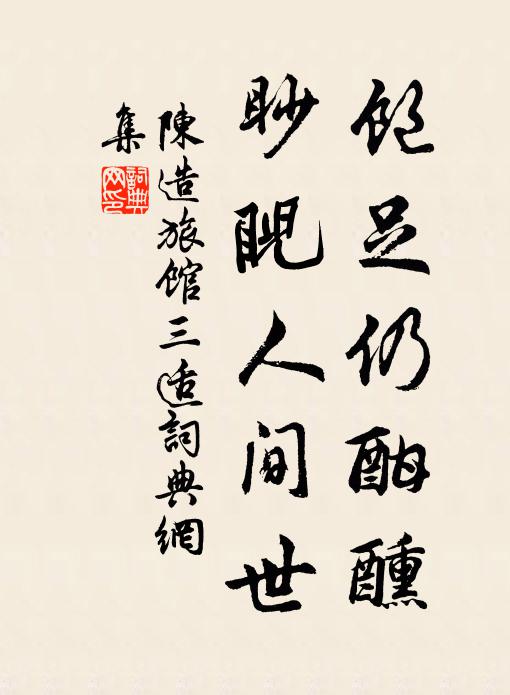 飽足仍酣醺
眇睨人間世
陳造旅館三适詞典網
集
詞典網印